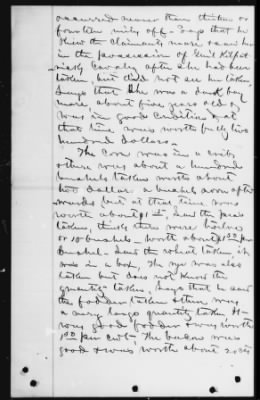 occurred nearer than thirteen or
fourteen miles off. Says that he
knew the Claimants mare & saw her
in the possession of Genl Kilpat-
ricks Cavalry after she had been
taken, but did not see her taken.
Says that she was a dark bay
mare about five years old &
was in good condition & at
that time was worth fully two
hundred dollars.
The corn was in a crib,
there was about a hundred
bushels taken worth about
two dollars a bushel soon after-
wards but at that time was
worth about $1.00, Saw the peas
taken, thinks there were
or 10 bushels - worth about $1.00 per
bushel. Saw the wheat taken it
was in a box, The rye was also
taken but does not know the
quantity taken, Says that he saw
the fodder taken & there was
a very large quantity taken It
was good fodder & was worth
1.00 per cwt. The bacon was
good & was worth about 20cts